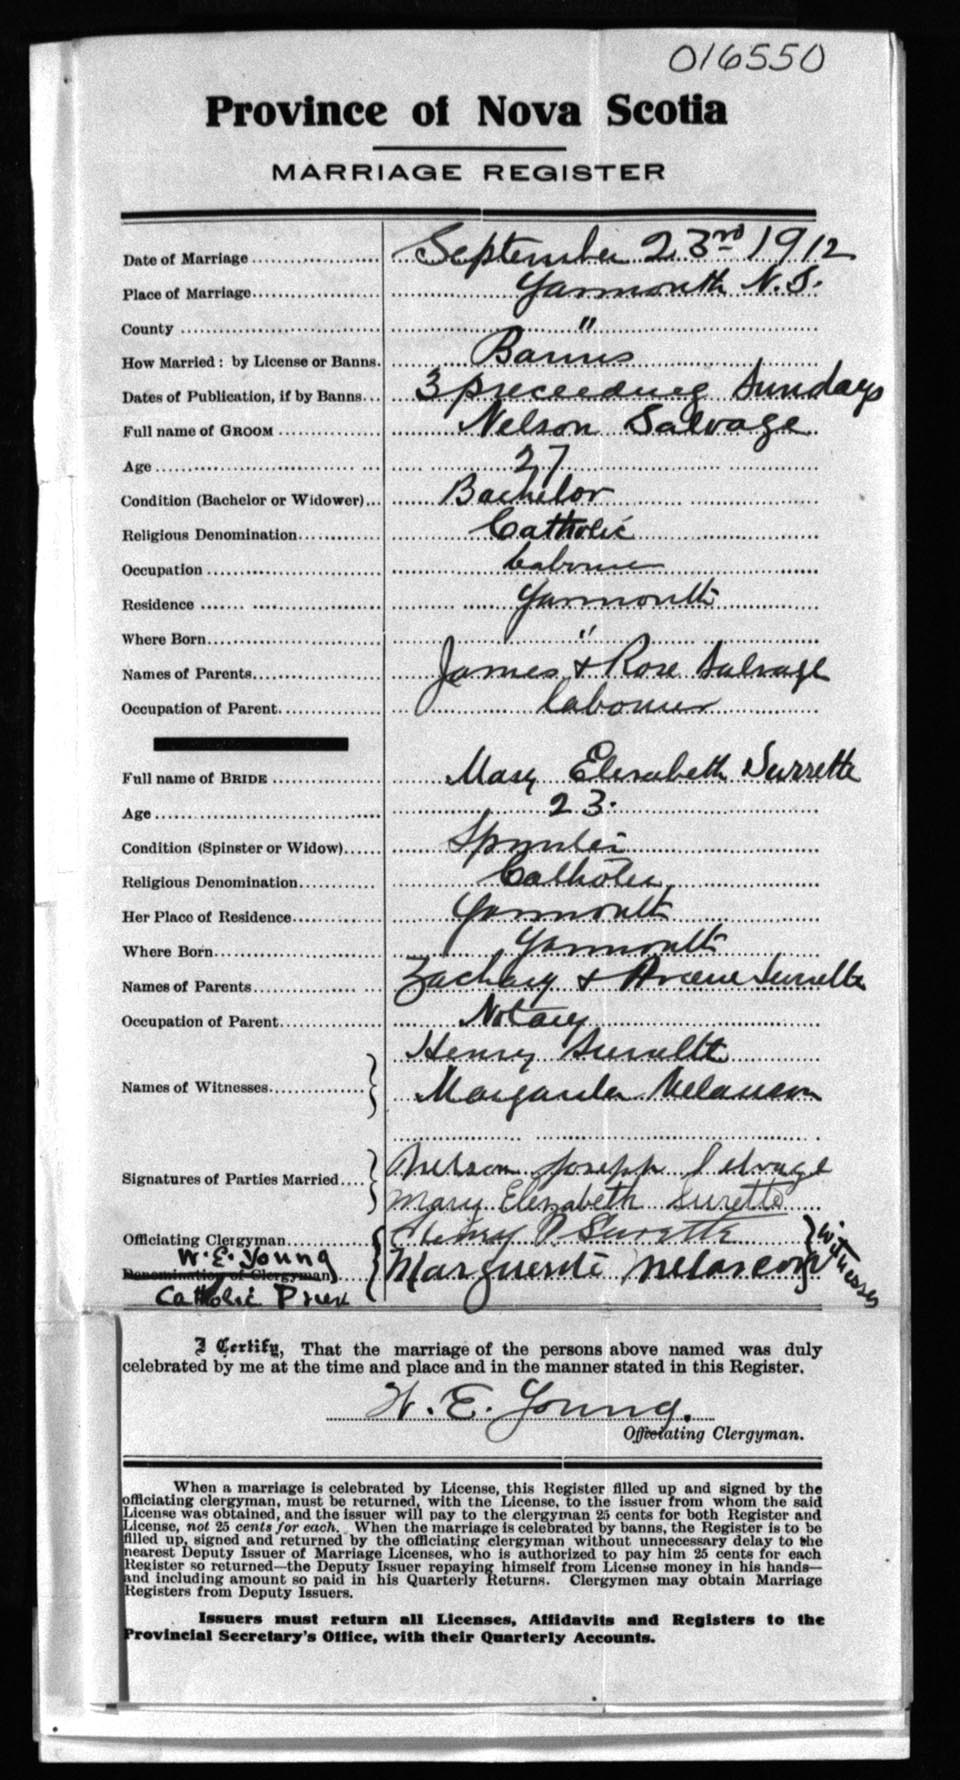 016550
Province of Nova Scotia
MARRIAGE REGISTER
Date of Marriage September 23rd 1912
Place of Marriage Yarmouth N.S.
County "
How Married: by License or Banns. Banns
Dates of Publication, if by Banns 3 preceeding Sundays
Full name of GROOM Nelson Salvage
Age 27
Condition (Bachelor or Widower) Bachelor
Religious Denomination Catholic
Occupation Labourer
Residence Yarmouth
Where Born "
Names of Parents James & Rose Salvage
Occupation of Parent Labourer
Full name of BRIDE Mary Elizabeth Surrette
Age 23.
Condition (Spinster or Widow) Spinster
Religious Denomination Catholic
Her Place of Residence Yarmouth
Where Born Yarmouth
Names of Parents Zachary & Surrette
Occupation of Parent Notary
Henry Surrette
Names of Witnesses Melanson
Nelson Joseph Selvage
Signatures of Parties Married
Mary Elizabeth Surette
Officiating Clergyman Henry P. Surette witnesses
W. E. Young
Denomination of Clergyman Marguerite Melanson
Catholic Priest
I Certify, That the marriage of the persons above named was duly
celebrated by me at the time and place and in the manner stated in this Register.
W. E. Young.
Officiating Clergyman.
When a marriage is celebrated by License, this Register filled up and signed by the
officiating clergyman, must be returned, with the License, to the issuer from whom the said
License was obtained, and the issuer will pay to the clergyman 25 cents for both Register and
License, not 25 cents for each. When the marriage is celebrated by banns, the Register is to be
filled up, signed and returned by the officiating clergyman without unnecessary delay to the
nearest Deputy Issuer of Marriage Licenses, who is authorized to pay him 25 cents for each
Register so returned—the Deputy Issuer repaying himself from License money in his hands—
and including amount so paid in his Quarterly Returns. Clergymen may obtain Marriage
Registers from Deputy Issuers.
Issuers must return all Licenses, Affidavits and Registers to the
Provincial Secretary's Office, with their Quarterly Accounts.